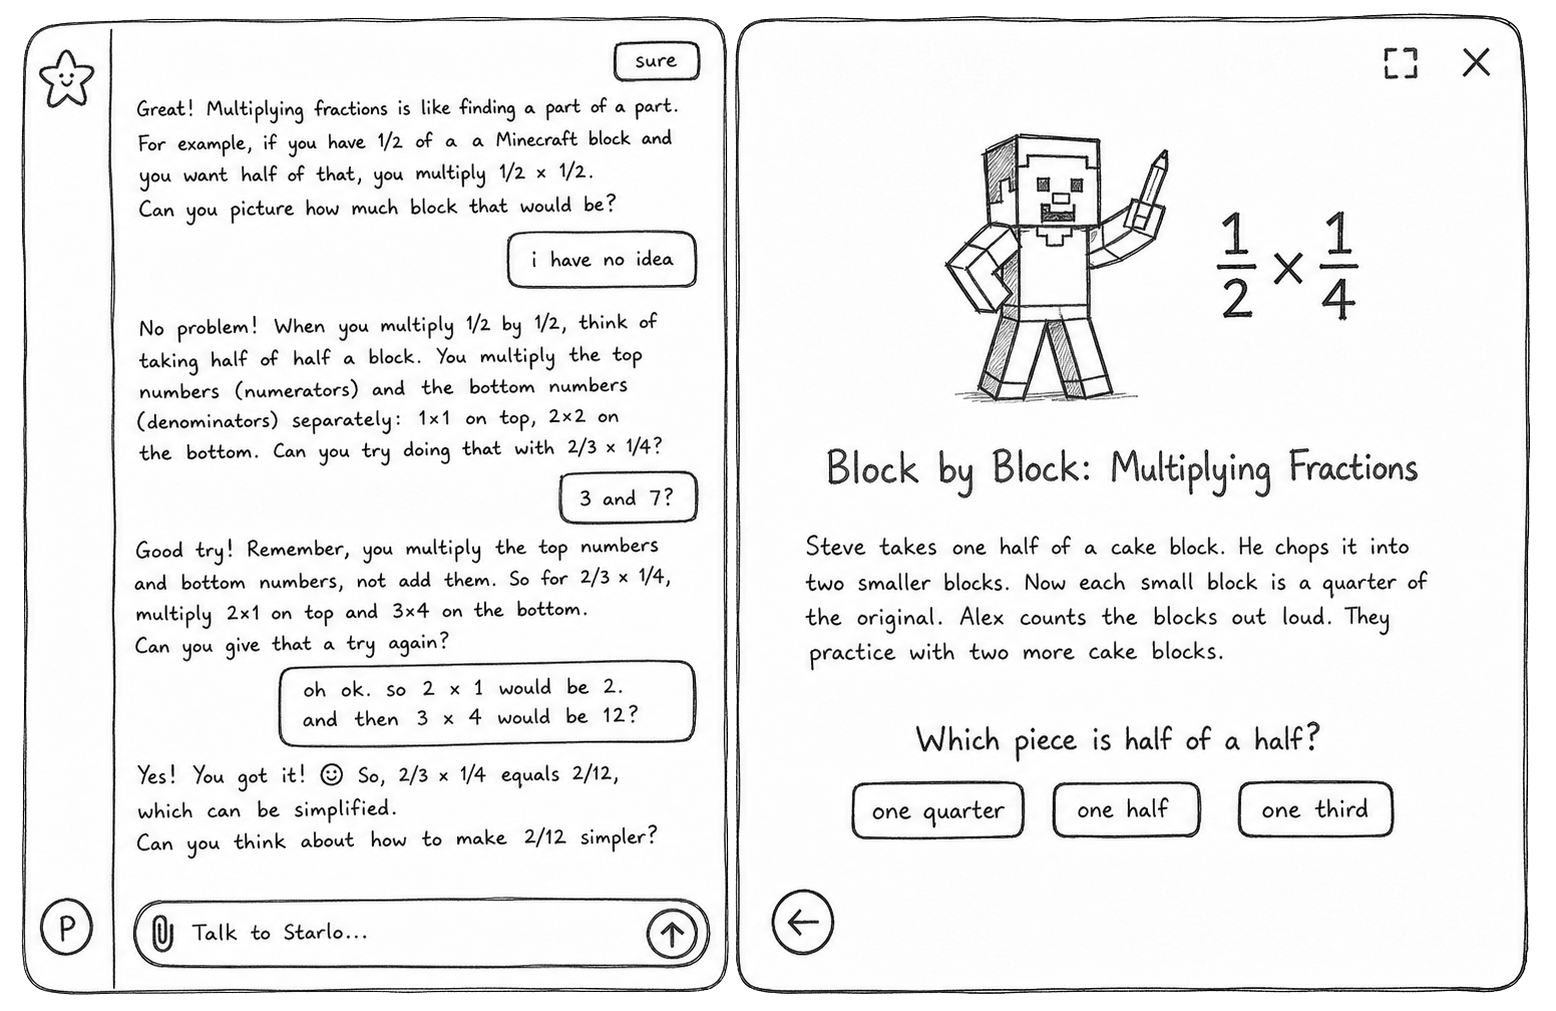 sure
Great! Multiplying fractions is like finding a part of a part.
For example, if you have 1/2 of a a Minecraft block and
you want half of that, you multiply 1/2 × 1/2.
Can you picture how much block that would be?
i have no idea
No problem! When you multiply 1/2 by 1/2, think of
taking half of half a block. You multiply the top
numbers (numerators) and the bottom numbers
(denominators) separately: 1×1 on top, 2×2 on
the bottom. Can you try doing that with 2/3 × 1/4?
3 and 7?
Good try! Remember, you multiply the top numbers
and bottom numbers, not add them. So for 2/3 × 1/4,
multiply 2×1 on top and 3×4 on the bottom.
Can you give that a try again?
oh ok. so 2 × 1 would be 2.
and then 3 × 4 would be 12?
Yes! You got it! ☺ So, 2/3 × 1/4 equals 2/12,
which can be simplified.
Can you think about how to make 2/12 simpler?
P
Talk to Starlo...
1/2 × 1/4
Block by Block: Multiplying Fractions
Steve takes one half of a cake block. He chops it into
two smaller blocks. Now each small block is a quarter of
the original. Alex counts the blocks out loud. They
practice with two more cake blocks.
Which piece is half of a half?
one quarter
one half
one third